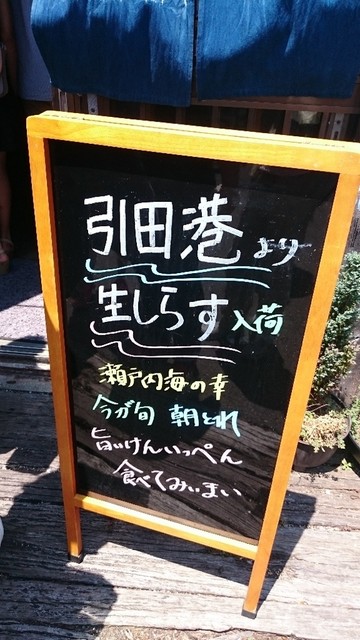 引田港より
生しらす入荷
瀬戸内海の幸
今が旬 朝とれ
旨いけんいっぺん
食べてみぃまい